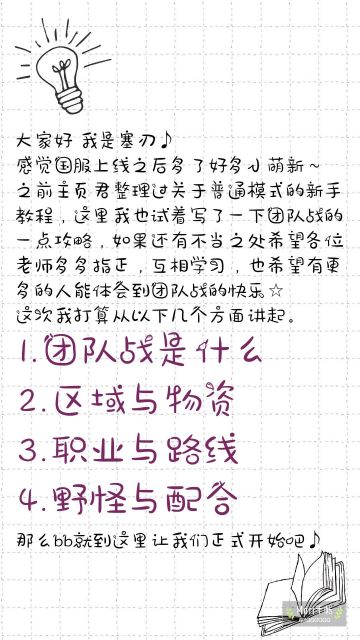 大家好 我是塞刃♪
感觉国服上线之后多了好多小萌新～
之前主页君整理过关于普通模式的新手
教程，这里我也试着写了一下团队战的
一点攻略，如果还有不当之处希望各位
老师多多指正，互相学习，也希望有更
多的人能体会到团队战的快乐☆
这次我打算从以下几个方面讲起。
1.团队战是什么
2.区域与物资
3.职业与路线
4.野怪与配合
那么bb就到这里让我们正式开始吧♪